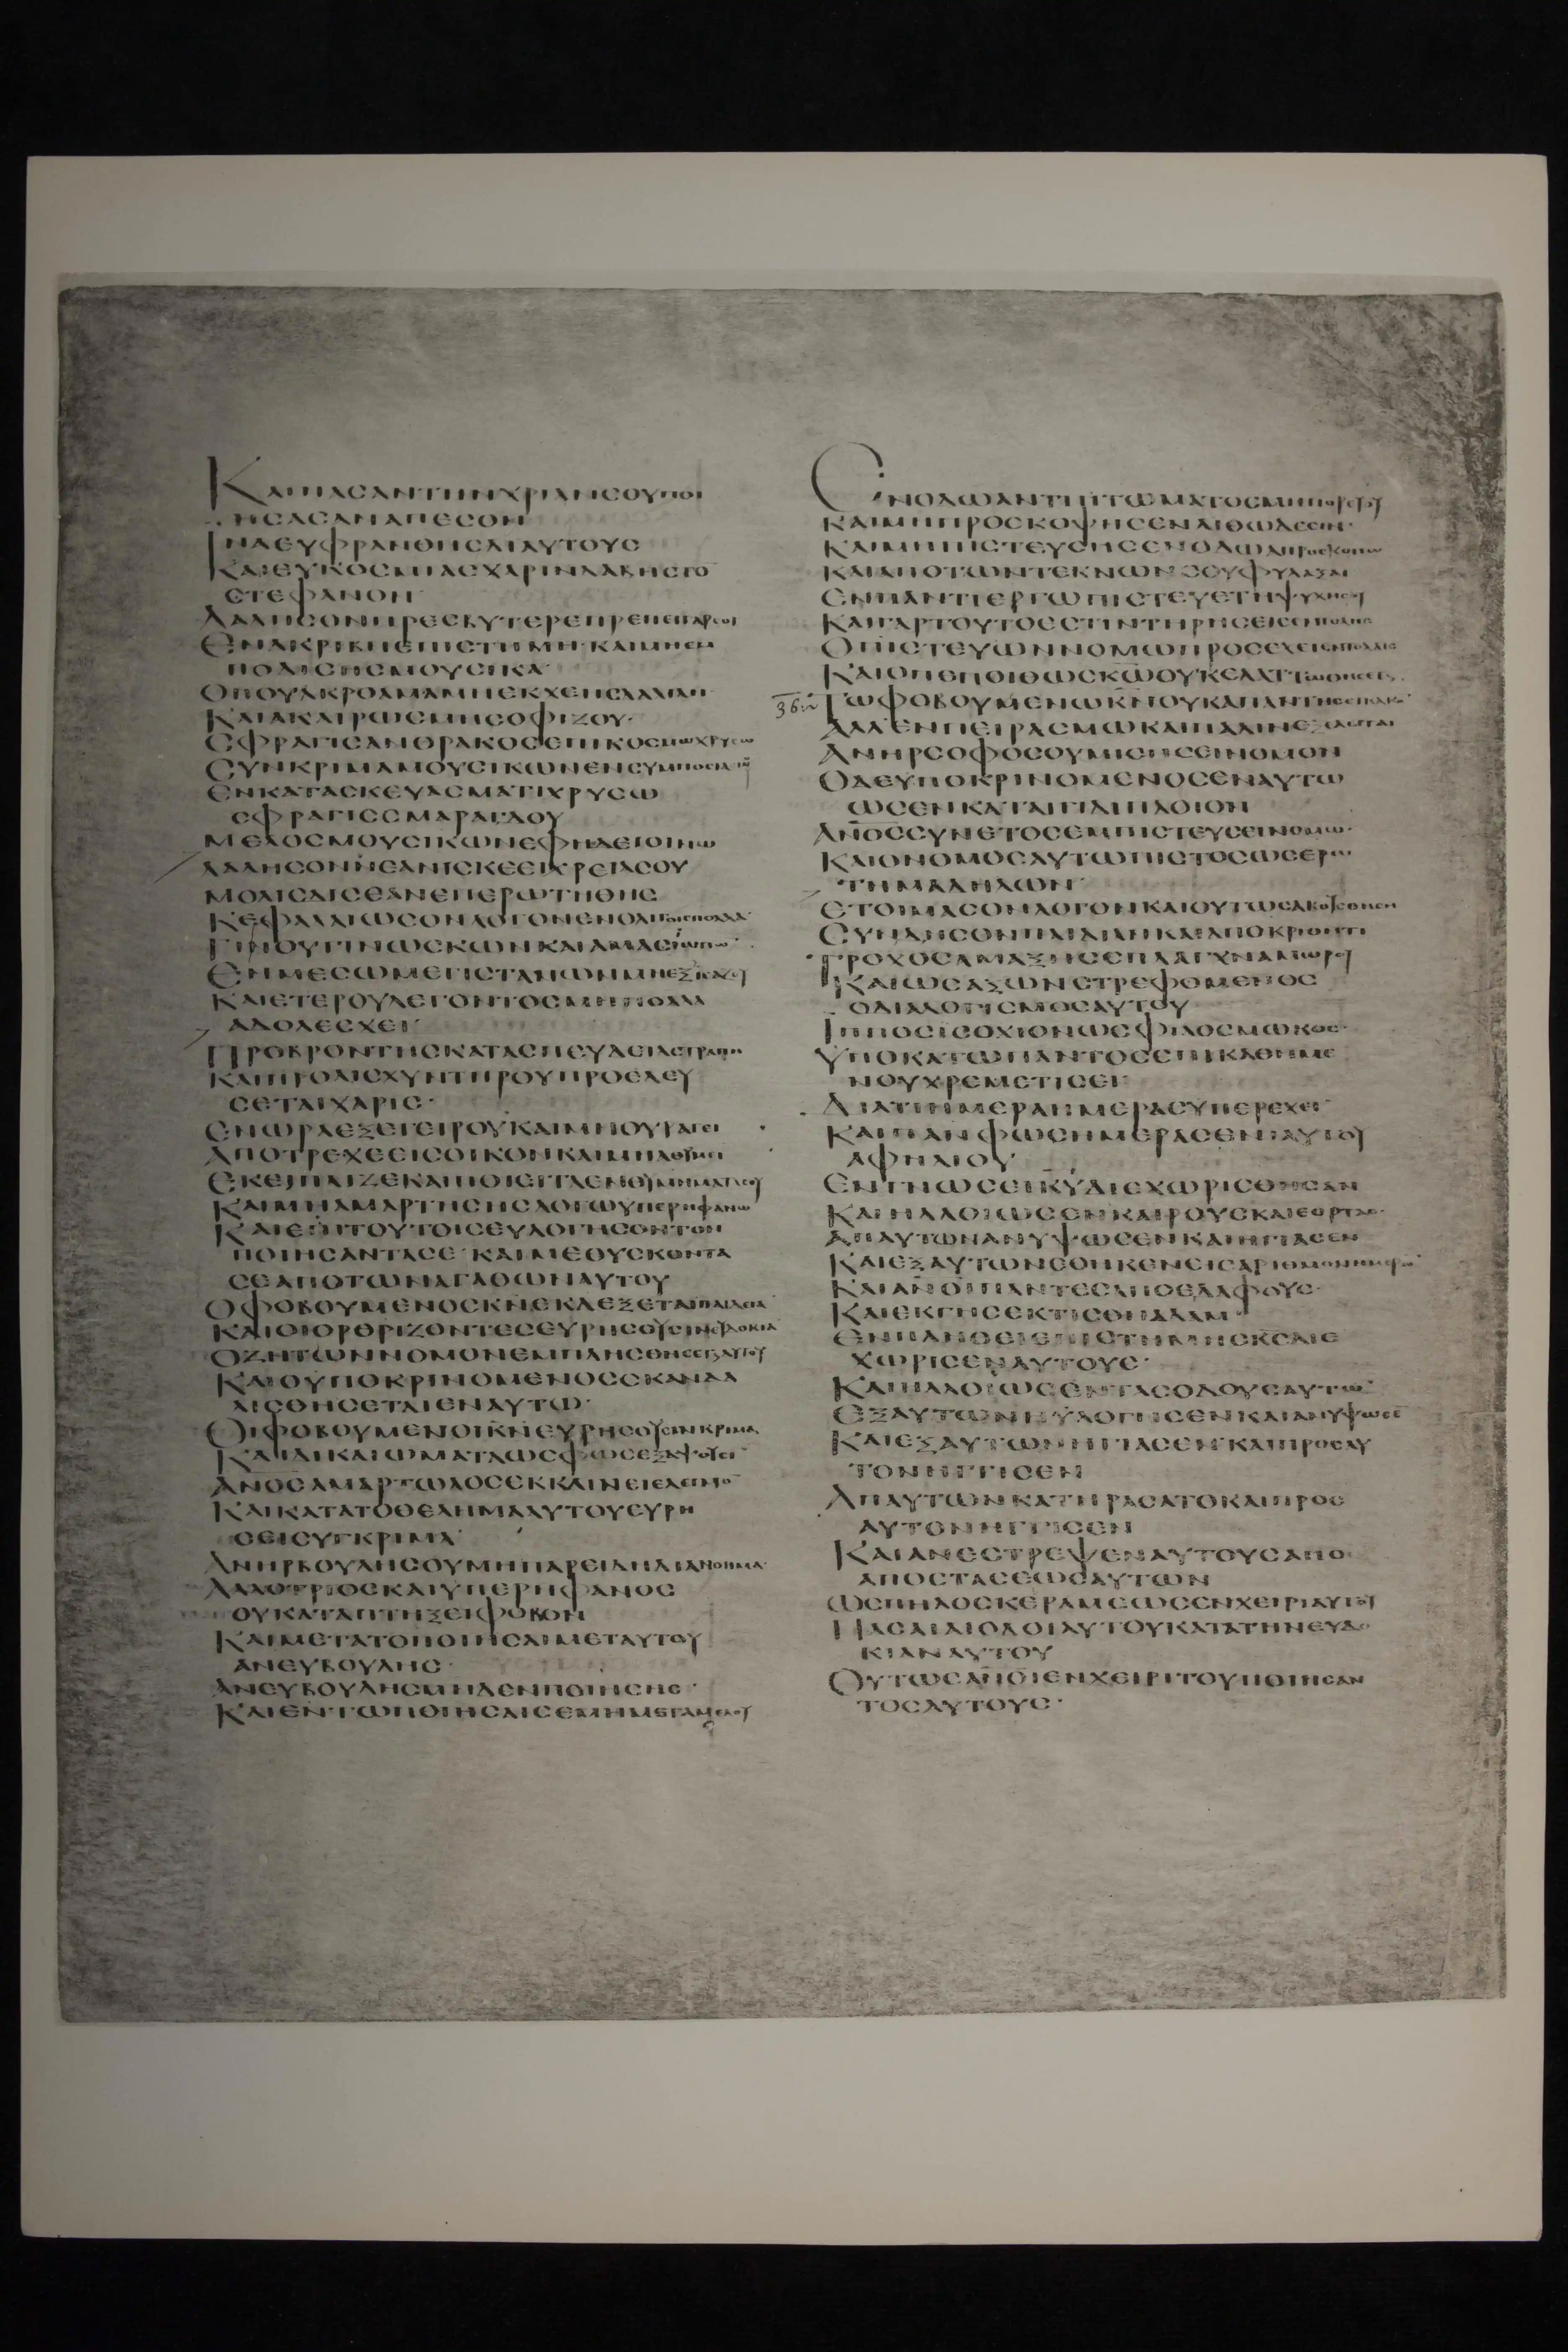 ΚΑΙΠΑϹΑΝΤΗΝΧΡΙΑΝϹΟΥΠΟΙ
ΗϹΑϹΑΝΑΠΕϹΟΝ
ΙΝΑΕΥΦΡΑΝΘΗϹΔΙΑΥΤΟΥϹ
ΚΑΙΕΥΚΟϹΜΙΑϹΧΑΡΙΝΛΑΒΗϹΤΟ̅
ϹΤΕΦΑΝΟΝ·
ΛΑΛΗϹΟΝΠΡΕϹΒΥΤΕΡΕΠΡΕΠΕΙΓΑΡϹΟΙ
ΕΝΑΚΡΙΒΗΕΠΙϹΤΗΜΗ·ΚΑΙΜΗΕΜ
ΠΟΔΙϹΗϹΜΟΥϹΙΚΑ·
ΟΠΟΥΑΚΡΟΑΜΑΜΗΕΚΧΕΗϹΛΑΛΙΑΝ·
ΚΑΙΑΚΑΙΡΩϹΜΗϹΟΦΙΖΟΥ·
ϹΦΡΑΓΙϹΑΝΘΡΑΚΟϹΕΠΙΚΟϹΜΩΧΡΥϹΩ
ϹΥΝΚΡΙΜΑΜΟΥϹΙΚΩΝΕΝϹΥΜΠΟϹΙΩ
ΕΝΚΑΤΑϹΚΕΥΑϹΜΑΤΙΧΡΥϹΩ
ϹΦΡΑΓΙϹϹΜΑΡΑΓΔΟΥ
ΜΕΛΟϹΜΟΥϹΙΚΩΝΕΦΗΔΕΙΟΙΝΩ
ΛΑΛΗϹΟΝΝΕΑΝΙϹΚΕΕΙΧΡΕΙΑϹΟΥ
ΜΟΛΙϹΔΙϹΕΑΝΕΠΕΡΩΤΗΘΗϹ
ΚΕΦΑΛΑΙΩϹΟΝΛΟΓΟΝΕΝΟΛΙΓΟΙϹΠΟΛΛΑ·
ΓΙΝΟΥΓΙΝΩϹΚΩΝΚΑΙΑΜΑϹΙΩΠΩ̅·
ΕΝΜΕϹΩΜΕΓΙϹΤΑΝΩΝΜΗΕΞΙϹΑΖΟΥ
ΚΑΙΕΤΕΡΟΥΛΕΓΟΝΤΟϹΜΗΠΟΛΛΑ
ΑΔΟΛΕϹΧΕΙ·
ΠΡΟΒΡΟΝΤΗϹΚΑΤΑϹΠΕΥΔΕΙΑϹΤΡΑΠΗ
ΚΑΙΠΡΟΑΙϹΧΥΝΤΗΡΟΥΠΡΟΕΛΕΥ
ϹΕΤΑΙΧΑΡΙϹ·
ΕΝΩΡΑΕΞΕΓΕΙΡΟΥΚΑΙΜΗΟΥΡΑΓΕΙ
ΑΠΟΤΡΕΧΕΕΙϹΟΙΚΟΝΚΑΙΜΗΡΑΘΥΜΕΙ
ΕΚΕΙΠΑΙΖΕΚΑΙΠΟΙΕΙΤΑΕΝΘΥΜΗΜΑΤΑϹΟΥ
ΚΑΙΜΗΑΜΑΡΤΗϹΗϹΛΟΓΩΥΠΕΡΗΦΑΝΩ
ΚΑΙΕΠΙΤΟΥΤΟΙϹΕΥΛΟΓΗϹΟΝΤΟΝ
ΠΟΙΗϹΑΝΤΑϹΕ·ΚΑΙΜΕΘΥϹΚΟΝΤΑ
ϹΕΑΠΟΤΩΝΑΓΑΘΩΝΑΥΤΟΥ
ΟΦΟΒΟΥΜΕΝΟϹΚ̅Ν̅ΕΚΔΕΞΕΤΑΙΠΑΙΔΕΙΑ̅
ΚΑΙΟΙΟΡΘΡΙΖΟΝΤΕϹΕΥΡΗϹΟΥϹΙΝΕΥΔΟΚΙΑ̅
ΟΖΗΤΩΝΝΟΜΟΝΕΜΠΛΗϹΘΗϹΕΤΑΙΑΥΤΟΥ
ΚΑΙΟΥΠΟΚΡΙΝΟΜΕΝΟϹϹΚΑΝΔΑ
ΛΙϹΘΗϹΕΤΑΙΕΝΑΥΤΩ·
ΟΙΦΟΒΟΥΜΕΝΟΙΚ̅Ν̅ΕΥΡΗϹΟΥϹΙΝΚΡΙΜΑ
ΚΑΙΔΙΚΑΙΩΜΑΤΑΩϹΦΩϹΕΞΑΨΟΥϹΙ
Α̅Ν̅Ο̅Ϲ̅ΑΜΑΡΤΩΛΟϹΕΚΚΛΙΝΕΙΕΛΕΓΜΟ̅
ΚΑΙΚΑΤΑΤΟΘΕΛΗΜΑΑΥΤΟΥΕΥΡΗ
ϹΕΙϹΥΓΚΡΙΜΑ·
ΑΝΗΡΒΟΥΛΗϹΟΥΜΗΠΑΡΕΙΔΗΔΙΑΝΟΗΜΑ·
ΑΛΛΟΤΡΙΟϹΚΑΙΥΠΕΡΗΦΑΝΟϹ
ΟΥΚΑΤΑΠΤΗΞΕΙΦΟΒΟΝ
ΚΑΙΜΕΤΑΤΟΠΟΙΗϹΑΙΜΕΤΑΥΤΟΥ
ΑΝΕΥΒΟΥΛΗϹ·
ΑΝΕΥΒΟΥΛΗϹΜΗΔΕΝΠΟΙΗϹΗϹ·
ΚΑΙΕΝΤΩΠΟΙΗϹΑΙϹΕΜΗΜΕΤΑΜΕΛΟΥ
ΕΝΟΔΩΑΝΤΙΠΤΩΜΑΤΟϹΜΗΠΟΡΕΥΟΥ
ΚΑΙΜΗΠΡΟϹΚΟΨΗϹΕΝΛΙΘΩΔΕϹΙΝ·
ΚΑΙΜΗΠΙϹΤΕΥϹΗϹΕΝΟΔΩΑΠΡΟϹΚΟΠΩ
ΚΑΙΑΠΟΤΩΝΤΕΚΝΩΝϹΟΥΦΥΛΑΞΑΙ
ΕΝΠΑΝΤΙΕΡΓΩΠΙϹΤΕΥΕΤΗΨΥΧΗϹΟΥ
ΚΑΙΓΑΡΤΟΥΤΟΕϹΤΙΝΤΗΡΗϹΕΙϹΕΝΤΟΛΩΝ
ΟΠΙϹΤΕΥΩΝΝΟΜΩΠΡΟϹΕΧΕΙΕΝΤΟΛΑΙϹ
ΚΑΙΟΠΕΠΟΙΘΩϹΚ̅Ω̅ΟΥΚΕΛΑΤΤΩΘΗϹΕΤΑΙ
ΤΩΦΟΒΟΥΜΕΝΩΚ̅Ν̅ΟΥΚΑΠΑΝΤΗϹΕΙΚΑΚΟ̅
ΑΛΛΕΝΠΕΙΡΑϹΜΩΚΑΙΠΑΛΙΝΕΞΕΛΕΙΤΑΙ
ΑΝΗΡϹΟΦΟϹΟΥΜΙϹΗϹΕΙΝΟΜΟΝ
ΟΔΕΥΠΟΚΡΙΝΟΜΕΝΟϹΕΝΑΥΤΩ
ΩϹΕΝΚΑΤΑΙΓΙΔΙΠΛΟΙΟΝ
Α̅Ν̅Ο̅Ϲ̅ϹΥΝΕΤΟϹΕΜΠΙϹΤΕΥϹΕΙΝΟΜΩ·
ΚΑΙΟΝΟΜΟϹΑΥΤΩΠΙϹΤΟϹΩϹΕΡΩ
ΤΗΜΑΔΗΛΩΝ
ΕΤΟΙΜΑϹΟΝΛΟΓΟΝΚΑΙΟΥΤΩϹΑΚΟΥϹΘΗϹΗ
ϹΥΝΔΗϹΟΝΠΑΙΔΙΑΝΚΑΙΑΠΟΚΡΙΘΗΤΙ
ΤΡΟΧΟϹΑΜΑΞΗϹϹΠΛΑΓΧΝΑΜΩΡΟΥ
ΚΑΙΩϹΑΞΩΝϹΤΡΕΦΟΜΕΝΟϹ
ΟΔΙΑΛΟΓΙϹΜΟϹΑΥΤΟΥ
ΙΠΠΟϹΙϹΟΧΙΟΝΩϹΦΙΛΟϹΜΩΚΟϹ·
ΥΠΟΚΑΤΩΠΑΝΤΟϹΕΠΙΚΑΘΗΜΕ
ΝΟΥΧΡΕΜΕΤΙϹΕΙ·
ΔΙΑΤΙΗΜΕΡΑΗΜΕΡΑϹΥΠΕΡΕΧΕΙ·
ΚΑΙΠΑΝΦΩϹΗΜΕΡΑϹΕΝΙΑΥΤΟΥ
ΑΦΗΛΙΟΥ
ΕΝΓΝΩϹΕΙΚ̅Υ̅ΔΙΕΧΩΡΙϹΘΗϹΑΝ
ΚΑΙΗΛΛΟΙΩϹΕΝΚΑΙΡΟΥϹΚΑΙΕΟΡΤΑϹ·
ΑΠΑΥΤΩΝΑΝΥΨΩϹΕΝΚΑΙΗΓΙΑϹΕΝ
ΚΑΙΕΞΑΥΤΩΝΕΘΗΚΕΝΕΙϹΑΡΙΘΜΟΝΗΜΕΡΩ̅
ΚΑΙΑ̅Ν̅Ο̅Ι̅ΠΑΝΤΕϹΑΠΟΕΔΑΦΟΥϹ·
ΚΑΙΕΚΓΗϹΕΚΤΙϹΘΗΑΔΑΜ·
ΕΝΠΛΗΘΕΙΕΠΙϹΤΗΜΗϹΚ̅Ϲ̅ΔΙΕ
ΧΩΡΙϹΕΝΑΥΤΟΥϹ·
ΚΑΙΗΛΛΟΙΩϹΕΝΤΑϹΟΔΟΥϹΑΥΤΩ̅
ΕΞΑΥΤΩΝΗΥΛΟΓΗϹΕΝΚΑΙΑΝΥΨΩϹΕ̅
ΚΑΙΕΞΑΥΤΩΝΗΓΙΑϹΕΝ·ΚΑΙΠΡΟϹΑΥ
ΤΟΝΗΓΓΙϹΕΝ
ΑΠΑΥΤΩΝΚΑΤΗΡΑϹΑΤΟΚΑΙΠΡΟϹ
ΑΥΤΟΝΗΓΓΙϹΕΝ
ΚΑΙΑΝΕϹΤΡΕΨΕΝΑΥΤΟΥϹΑΠΟ
ΑΠΟϹΤΑϹΕΩϹΑΥΤΩΝ
ΩϹΠΗΛΟϹΚΕΡΑΜΕΩϹΕΝΧΕΙΡΙΑΥΤΟΥ
ΠΑϹΑΙΑΙΟΔΟΙΑΥΤΟΥΚΑΤΑΤΗΝΕΥΔΟ
ΚΙΑΝΑΥΤΟΥ
ΟΥΤΩϹΑ̅Ν̅Ο̅Ι̅ΕΝΧΕΙΡΙΤΟΥΠΟΙΗϹΑΝ
ΤΟϹΑΥΤΟΥϹ·